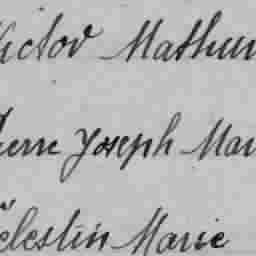 Victor Mathur
Pierre Joseph Mar
Célestin Marie